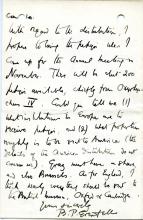 With regard to the distribution. I
propose to bring the papyri when I
come up for the Annual meeting in
November. There will be about 200
papyri available, chiefly from Oxyrhyn-
chus IV. Could you tell me (1)
what institutions in Europe are to
receive papyri, and (2) what proportion
roughly is to be sent to America (the
details in the American distribution don't
concern). Graz must have a share
as also Brussels. As for England, I
think nearly everything should be sent to
the British Museum, Oxford or Cambridge.
Yours sincerely
B. P. Grenfell